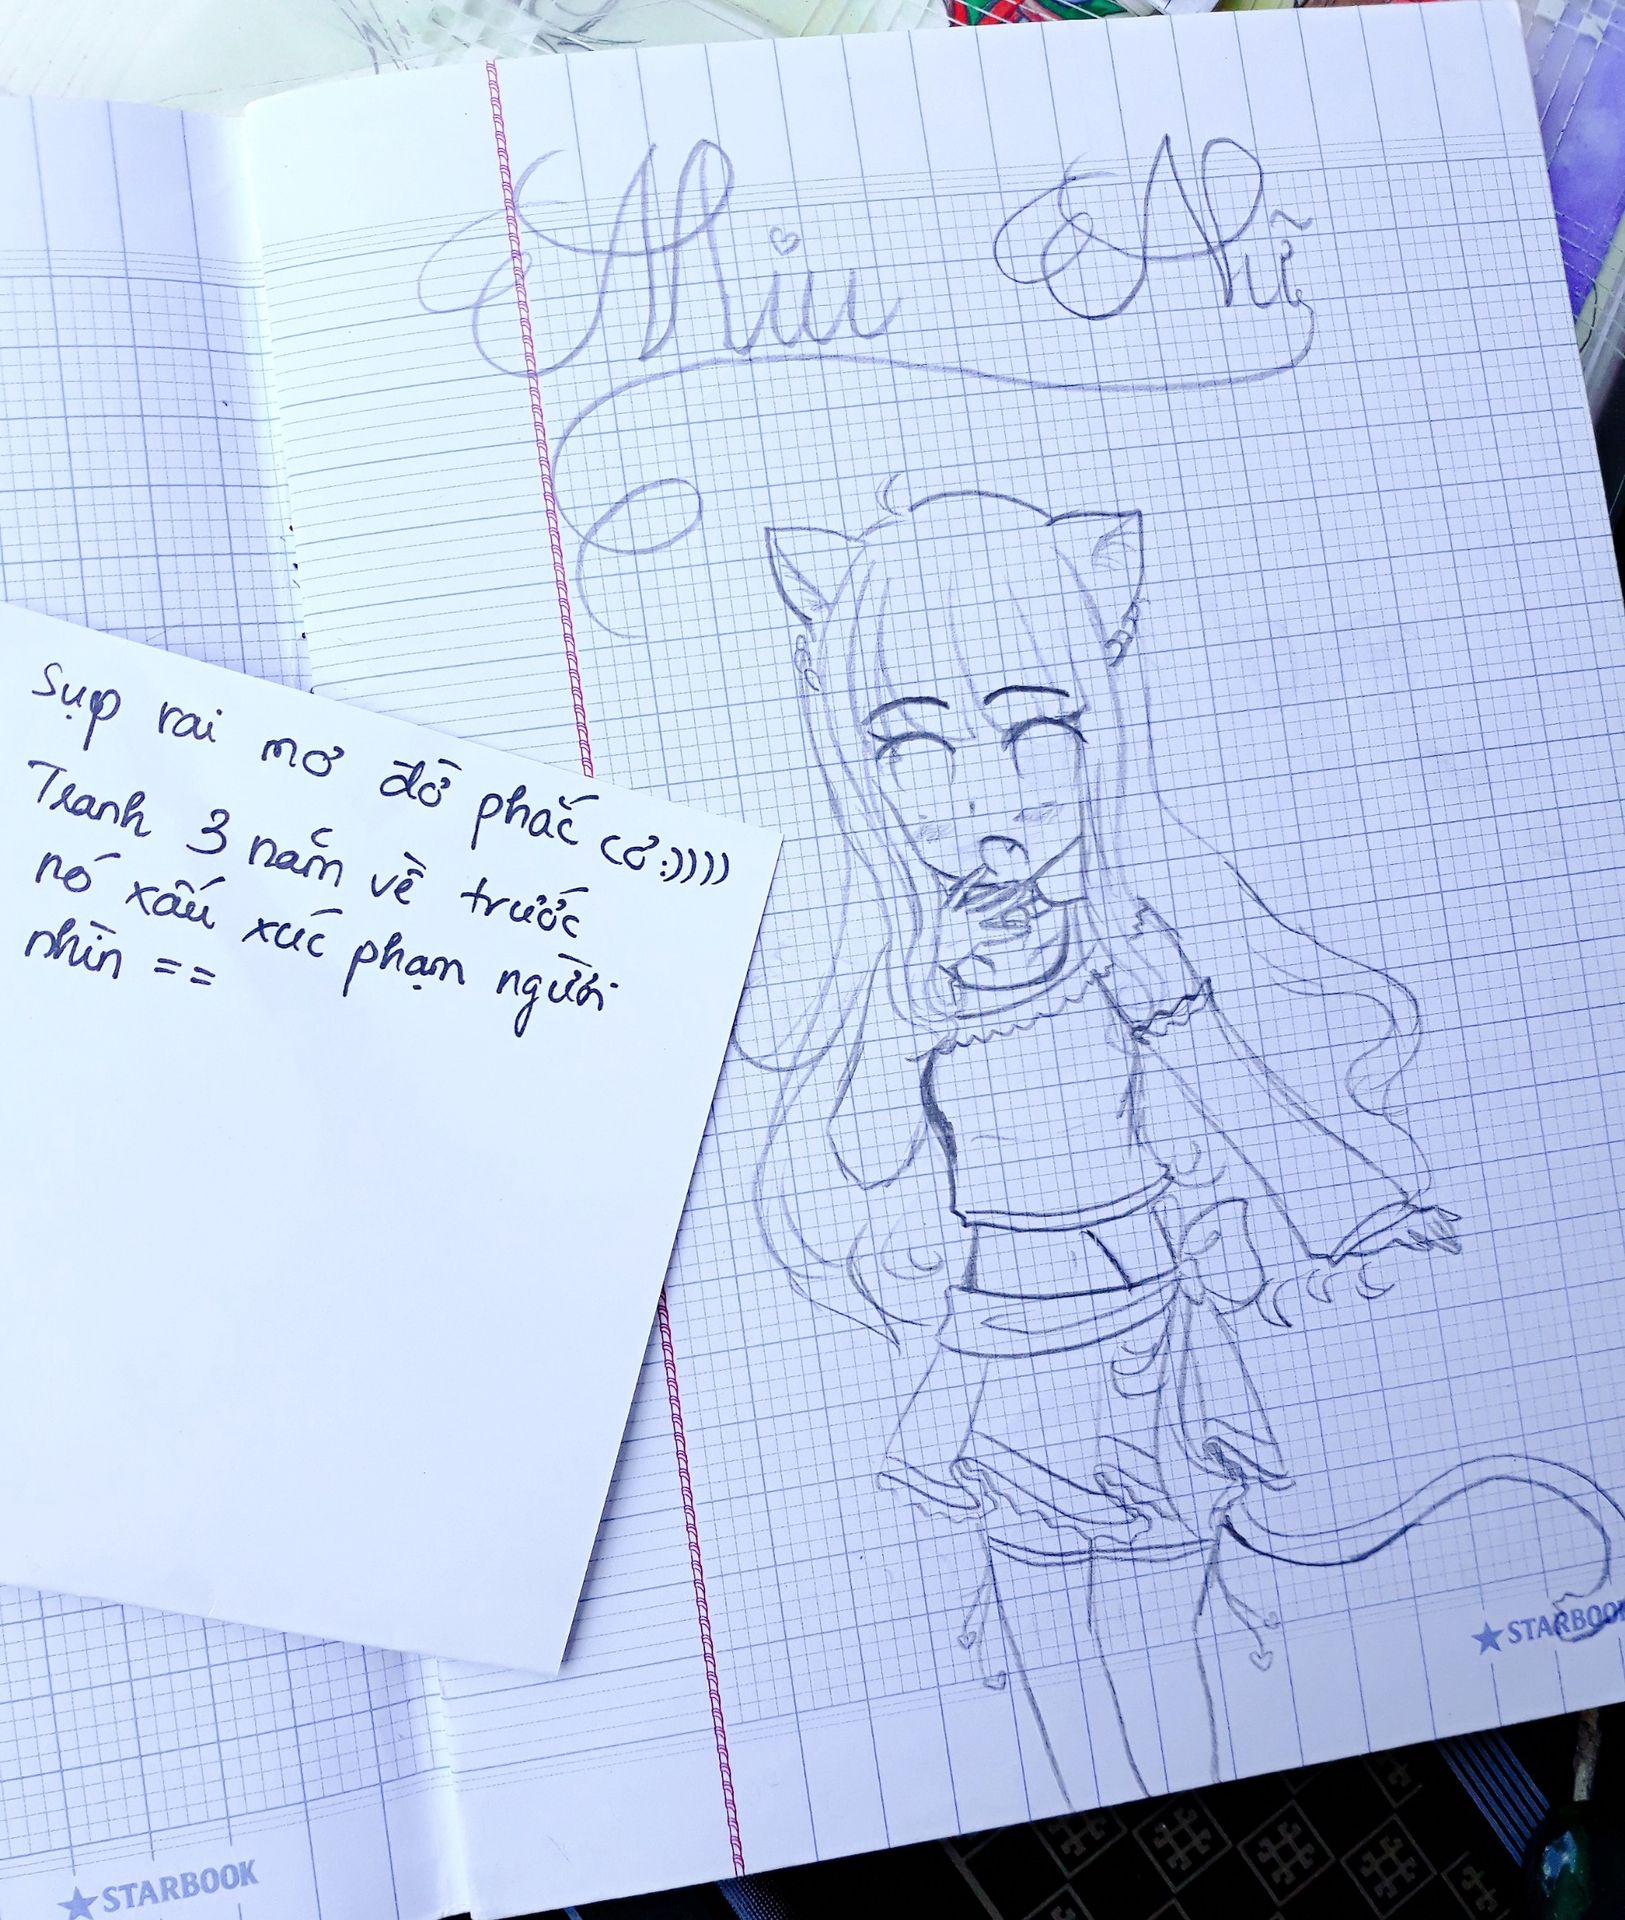 Miu Nhĩ
Sụp rai mơ đờ phắc cơ:))))
Tranh 3 năm về trước
nó xấu xúc phạm người
nhìn ==
★STARBOOK
★STARBOOK